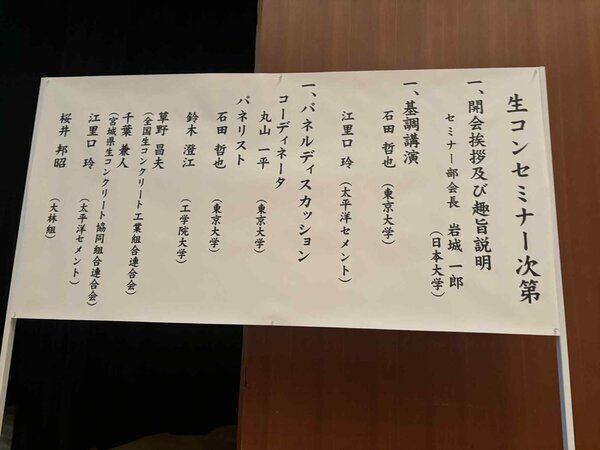 生コンセミナー次第
一、開会挨拶及び趣旨説明
セミナー部会長 岩城 一郎
(日本大学)
一、基調講演
石田 哲也 (東京大学)
江里口 玲 (太平洋セメント)
一、パネルディスカッション
コーディネータ
丸山 一平 (東京大学)
パネリスト
石田 哲也 (東京大学)
鈴木 澄江 (工学院大学)
草野 昌夫
(全国生コンクリート工業組合連合会)
千葉 兼人
(宮城県生コンクリート協同組合連合会)
江里口 玲 (太平洋セメント)
桜井 邦昭 (大林組)